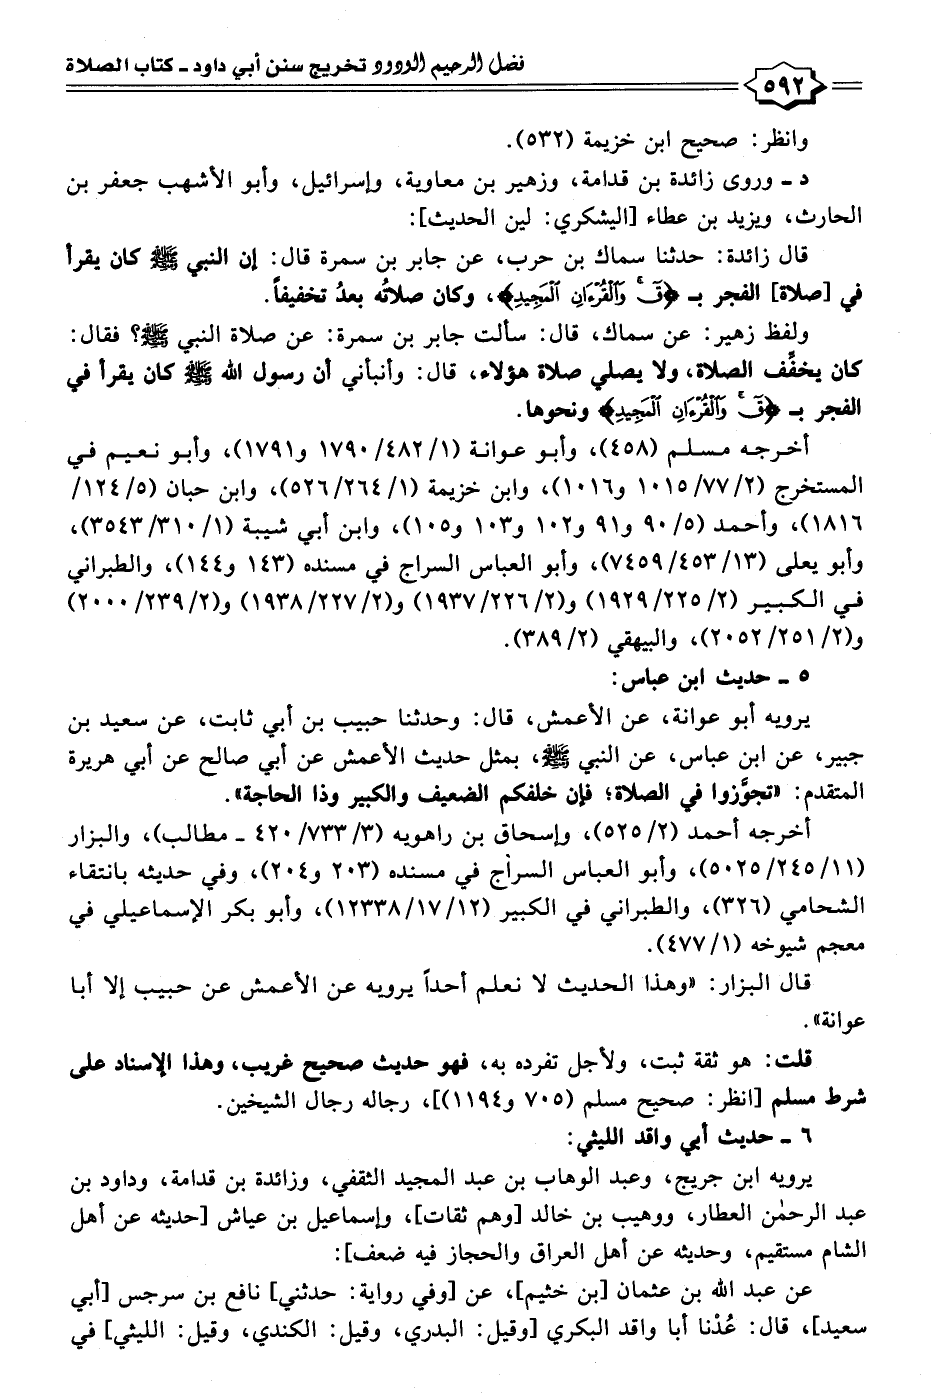 فضل الرحيم الودود تخريج سنن أبي داود ـ كتاب الصلاة
٥٩٢
وانظر: صحيح ابن خزيمة (٥٣٢).
د ـ وروى زائدة بن قدامة، وزهير بن معاوية، وإسرائيل، وأبو الأشهب جعفر بن
الحارث، ويزيد بن عطاء [اليشكري: لين الحديث]:
قال زائدة: حدثنا سماك بن حرب، عن جابر بن سمرة قال: إن النبي ﷺ كان يقرأ
في [صلاة] الفجر بـ ﴿قٓ ۚ وَٱلْقُرْءَانِ ٱلْمَجِيدِ﴾، وكان صلاتُه بعدُ تخفيفاً.
ولفظ زهير: عن سماك، قال: سألت جابر بن سمرة: عن صلاة النبي ﷺ؟ فقال:
كان يخفِّف الصلاة، ولا يصلي صلاة هؤلاء، قال: وأنبأني أن رسول الله ﷺ كان يقرأ في
الفجر بـ ﴿قٓ ۚ وَٱلْقُرْءَانِ ٱلْمَجِيدِ﴾ ونحوها.
أخرجه مسلم (٤٥٨)، وأبو عوانة (١/ ٤٨٢/ ١٧٩٠ و١٧٩١)، وأبو نعيم في
المستخرج (٢/ ٧٧/ ١٠١٥ و١٠١٦)، وابن خزيمة (١/ ٢٦٤/ ٥٢٦)، وابن حبان (٥/ ١٢٤/
١٨١٦)، وأحمد (٥/ ٩٠ و٩١ و١٠٢ و١٠٣ و١٠٥)، وابن أبي شيبة (١/ ٣١٠/ ٣٥٤٣)،
وأبو يعلى (١٣/ ٤٥٣/ ٧٤٥٩)، وأبو العباس السراج في مسنده (١٤٣ و١٤٤)، والطبراني
في الكبير (٢/ ٢٢٥/ ١٩٢٩) و(٢/ ٢٢٦/ ١٩٣٧) و(٢/ ٢٢٧/ ١٩٣٨) و(٢/ ٢٣٩/ ٢٠٠٠)
و(٢/ ٢٥١/ ٢٠٥٢)، والبيهقي (٢/ ٣٨٩).
٥ ـ حديث ابن عباس:
يرويه أبو عوانة، عن الأعمش، قال: وحدثنا حبيب بن أبي ثابت، عن سعيد بن
جبير، عن ابن عباس، عن النبي ﷺ، بمثل حديث الأعمش عن أبي صالح عن أبي هريرة
المتقدم: «تجوَّزوا في الصلاة؛ فإن خلفكم الضعيف والكبير وذا الحاجة».
أخرجه أحمد (٢/ ٥٢٥)، وإسحاق بن راهويه (٣/ ٧٣٣/ ٤٢٠ ـ مطالب)، والبزار
(١١/ ٢٤٥/ ٥٠٢٥)، وأبو العباس السراج في مسنده (٢٠٣ و٢٠٤)، وفي حديثه بانتقاء
الشحامي (٣٢٦)، والطبراني في الكبير (١٢/ ١٧/ ١٢٣٣٨)، وأبو بكر الإسماعيلي في
معجم شيوخه (١/ ٤٧٧).
قال البزار: «وهذا الحديث لا نعلم أحداً يرويه عن الأعمش عن حبيب إلا أبا
عوانة».
قلت: هو ثقة ثبت، ولأجل تفرده به، فهو حديث صحيح غريب، وهذا الإسناد على
شرط مسلم [انظر: صحيح مسلم (٧٠٥ و١١٩٤)]، رجاله رجال الشيخين.
٦ ـ حديث أبي واقد الليثي:
يرويه ابن جريج، وعبد الوهاب بن عبد المجيد الثقفي، وزائدة بن قدامة، وداود بن
عبد الرحمٰن العطار، ووهيب بن خالد [وهم ثقات]، وإسماعيل بن عياش [حديثه عن أهل
الشام مستقيم، وحديثه عن أهل العراق والحجاز فيه ضعف]:
عن عبد الله بن عثمان [بن خثيم]، عن [وفي رواية: حدثني] نافع بن سرجس [أبي
سعيد]، قال: عُدْنا أبا واقد البكري [وقيل: البدري، وقيل: الكندي، وقيل: الليثي] في